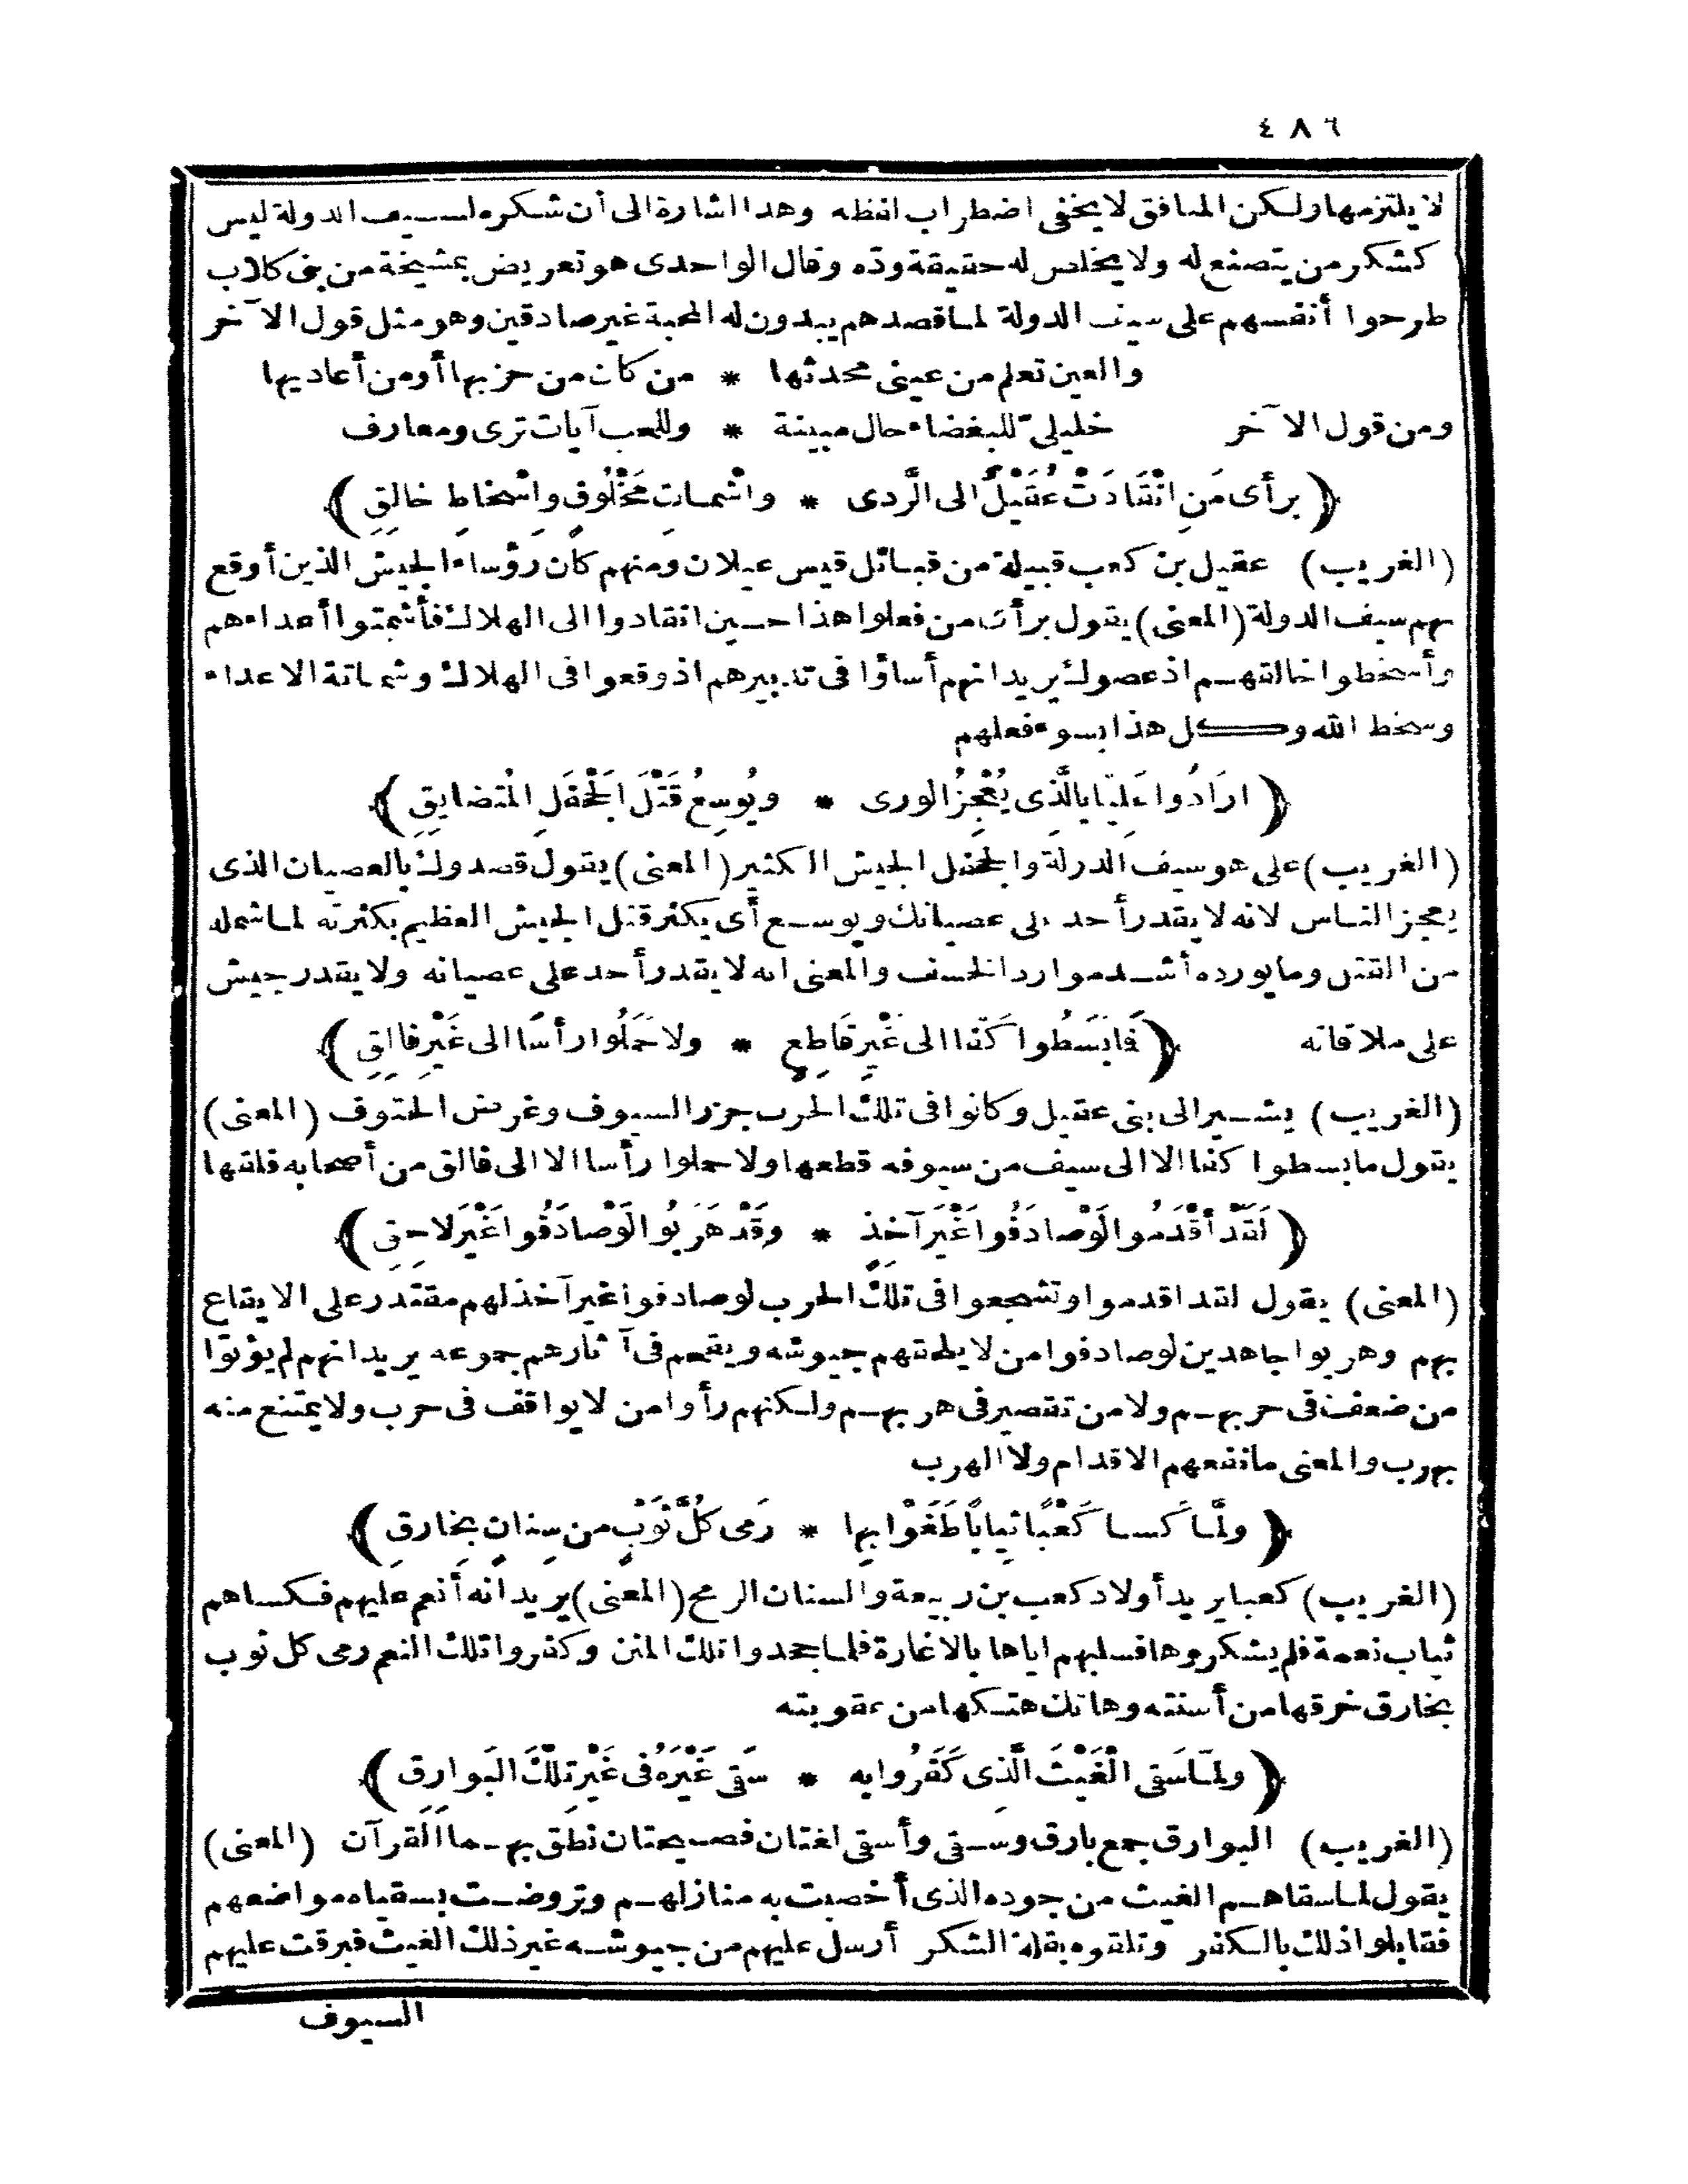 ٤٨٦
لا يلتزمها ولكن المنافق لا يخفى اضطراب لفظه وهذا اشارة الى أن شكره لسيف الدولة ليس
كشكر من يتصنع له ولا يخلص له حقيقة ودّه وقال الواحدى هو تعريض بمشيخة من بنى كلاب
طرحوا أنفسهم على سيف الدولة لما قصدهم يبدون له المحبة غير صادقين وهو مثل قول الآخر
والعين تعلم من عينى محدثها * من كان من حزبها أو من أعاديها
ومن قول الآخر خليلىّ للبغضاء حال مبينة * وللحب آيات ترى ومعارف
﴿ برأى مَنِ انْقَادَتْ عُقَيْلٌ الى الرَّدى * واشْماتِ مَخْلُوقٍ واِسْخاطِ خالِقِ ﴾
(الغريب) عقيل بن كعب قبيلة من قبائل قيس عيلان ومنهم كان رؤساء الجيش الذين أوقع
بهم سيف الدولة (المعنى) يقول برأى من فعلوا هذا حين انقادوا الى الهلاك فأشمتوا أعداءهم
وأسخطوا خالقهم اذ عصوك يريد انهم أساؤا فى تدبيرهم اذ وقعوا فى الهلاك وشماتة الاعداء
وسخط الله وكل هذا بسوء فعلهم
﴿ ارَادُوا عَلِيّا بالَّذِى يُعْجِزُ الورى * ويُوسِعُ قَتْلَ الجَحْفَلِ المُتَضايِقِ ﴾
(الغريب) على هو سيف الدولة والجحفل الجيش الكثير (المعنى) يقول قصدوك بالعصيان الذى
يعجز الناس لانه لا يقدر أحد على عصيانك ويوسع أى يكثر قتل الجيش العظيم بكثرته لما شمله
من القتل وما يورده أشد موارد الخسف والمعنى انه لا يقدر أحد على عصيانه ولا يقدر جيش
على ملاقاته ﴿ فَمابَسَطُوا كَفّا الى غَيْرِ قَاطِعٍ * ولا حَمَلُوا رأسًا الى غَيْرِ فالِقِ ﴾
(الغريب) يشير الى بنى عقيل وكانوا فى تلك الحرب جزر السيوف وغرض الحتوف (المعنى)
يقول ما بسطوا كفا الا الى سيف من سيوفه قطعها ولا حملوا رأسا الا الى فالق من أصحابه فلقها
﴿ لَقَدْ أقْدَمُوا لَوْ صادَفُوا غَيْرَ آخِذٍ * وقَدْ هَرَبُوا لَوْ صادَفُوا غَيْرَ لاحِقِ ﴾
(المعنى) يقول لقد اقدموا وتشجعوا فى تلك الحرب لو صادفوا غير آخذ لهم مقتدر على الايقاع
بهم وهربوا جاهدين لو صادفوا من لا يلحقهم جيوشه ويقحم فى آثارهم جموعه يريد انهم لم يؤتوا
من ضعف فى حربهم ولا من تقصير فى هربهم ولكنهم رأوا من لا يواقف فى حرب ولا يمتنع منه
بهرب والمعنى ما نفعهم الاقدام ولا الهرب
﴿ ولَمَّا كَسا كَعْبًا ثِيابًا طَغَوْا بِها * رَمى كُلَّ ثَوْبٍ من سِنانٍ بِخارِقِ ﴾
(الغريب) كعبا يريد أولاد كعب بن ربيعة والسنان الرمح (المعنى) يريد أنه أنعم عليهم فكساهم
ثياب نعمة فلم يشكروها فسلبهم اياها بالاغارة فلما جحدوا تلك المنن وكفروا تلك النعم رمى كل ثوب
بخارق خرقها من أسنته وهاتك هتكها من عقوبته
﴿ ولمّا سَقَى الْغَيْثَ الَّذِى كَفَرُوا بِه * سَقَى غَيْرَهُ فى غَيْرِ تلْكَ البَوارِقِ ﴾
(الغريب) البوارق جمع بارق وسقى وأسقى لغتان فصيحتان نطق بهما القرآن (المعنى)
يقول لما سقاهم الغيث من جوده الذى أخصبت به منازلهم وتروضت بسقياه مواضعهم
فقابلوا ذلك بالكفر وتلقوه بقلة الشكر أرسل عليهم من جيوشه غير ذلك الغيث فبرقت عليهم
السيوف